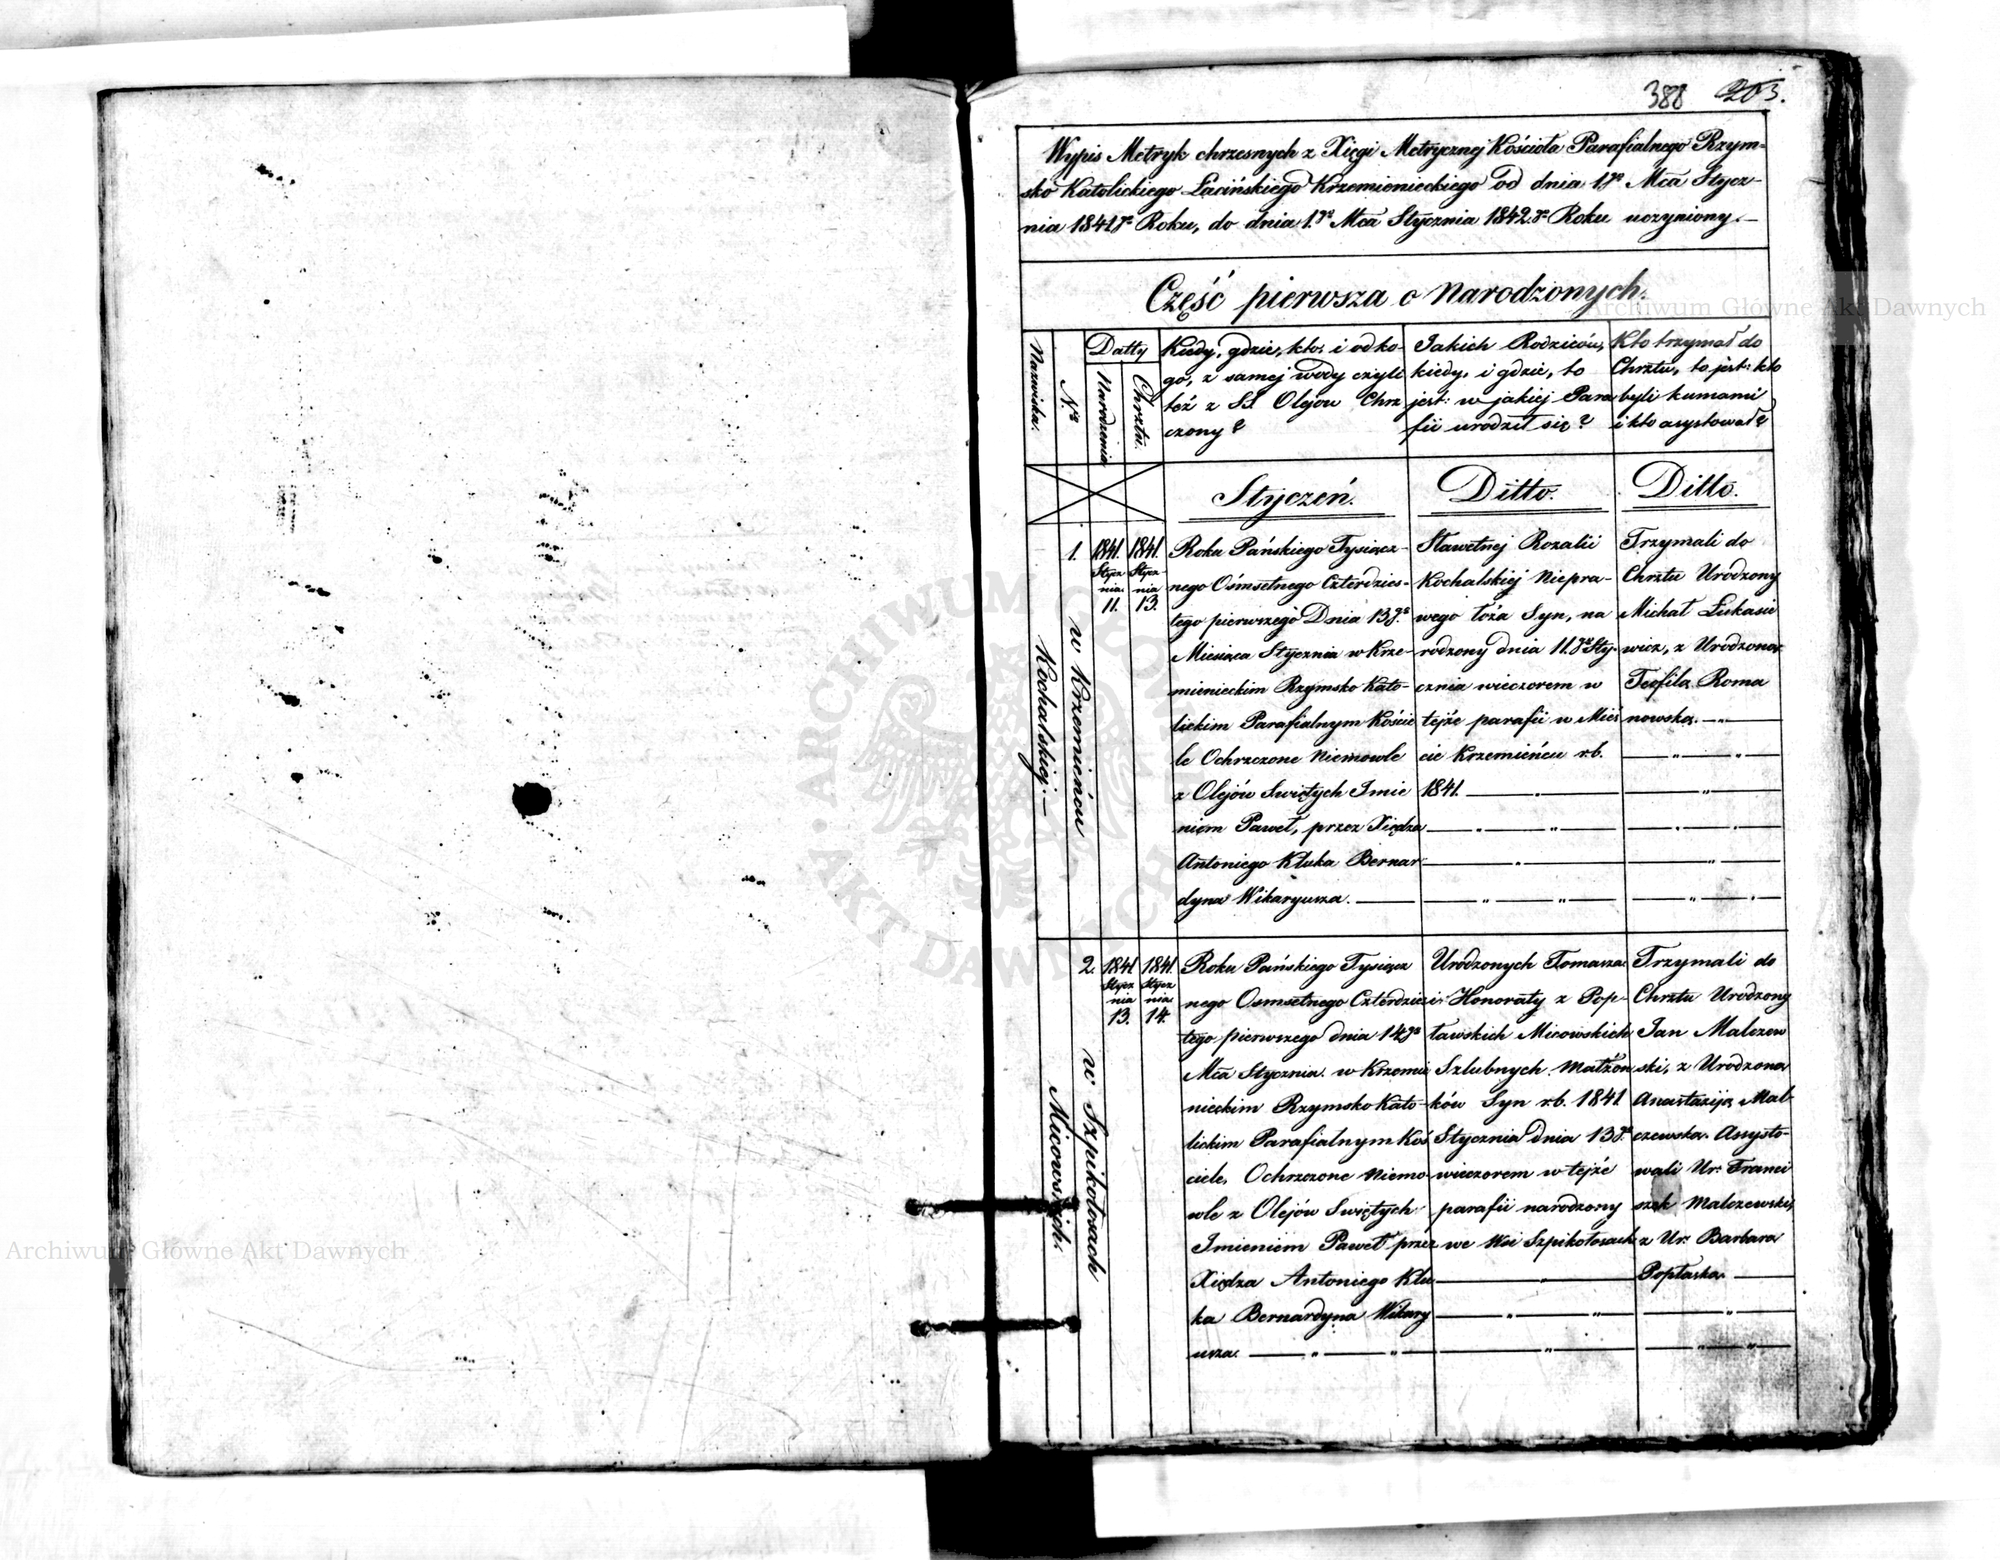 388 203.
Wypis Metryk chrzesnych z Xięgi Metrycznej Kościoła Parafialnego Rzym-
sko Katolickiego Łacińskiego Krzemienieckiego od dnia 1go Mca Stycz-
nia 1841go Roku, do dnia 1.go Mca Stycznia 1842.go Roku uczyniony.
Część pierwsza o Narodzonych.
Nazwiska.
Nro
Datty
Narodzenia
Chrztu.
Kiedy, gdzie, kto, i od ko-
go, z samej wody czyli
też z SS. Olejow Chrz
czony?
Jakich Rodziców,
kiedy, i gdzie, to
jest: w jakiej Para
fii urodził się?
Kto trzymał do
Chrztu, to jest: kto
byli kumami
i kto asystował?
Styczeń.
Ditto.
Ditto.
w Krzemieńcu
Kochalskiej.
1.
1841.
Stycz
nia
11.
1841.
Stycz-
nia
13.
Roku Pańskiego Tysiącz-
nego Ośmsetnego Czterdzies-
tego pierwszego Dnia 13go
Miesiąca Stycznia w Krze-
mienieckim Rzymsko Kato-
lickim Parafialnym Koście
le Ochrzczone Niemowle
z Olejów Swiętych Imie
niem Paweł, przez Xiędza
Antoniego Kluka Bernar
dyna Wikaryusza.
Sławetnej Rozalii
Kochalskiej Niepra-
wego łoża Syn, na
rodzony dnia 11.go Sty-
cznia wieczorem w
tejże parafii w Mieś
cie Krzemieńcu r.b.
1841.
Trzymali do
Chrztu Urodzony
Michał Łukasie
wicz, z Urodzoną
Teofilą Roma
nowską.
w Szpikołosach
Micowskich.
2.
1841
Stycz
nia
13.
1841.
Stycz
nia
14.
Roku Pańskiego Tysiącz
nego Osmsetnego Czterdzies
tego pierwszego dnia 14go
Mca Stycznia w Krzemie
nieckim Rzymsko Kato-
lickim Parafialnym Koś
ciele, Ochrzczone Niemo
wle z Olejów Swiętych
Imieniem Paweł przez
Xiędza Antoniego Klu
ka Bernardyna Wikary
usza.
Urodzonych Tomasza
i Honoraty z Pop-
ławskich Micowskich
Szlubnych Małżon
ków Syn r.b. 1841
Stycznia dnia 13go
wieczorem w tejże
parafii narodzony
we Wsi Szpikołosach
Trzymali do
Chrztu Urodzony
Jan Malczew
ski, z Urodzoną
Anastazyją Mal-
czewską. Assysto-
wali Ur: Franci
szek Malczewski,
z Ur: Barbarą
Popłaską.
Archiwum Główne Akt Dawnych
Archiwum Główne Akt Dawnych
ARCHIWUM GŁÓWNE AKT DAWNYCH